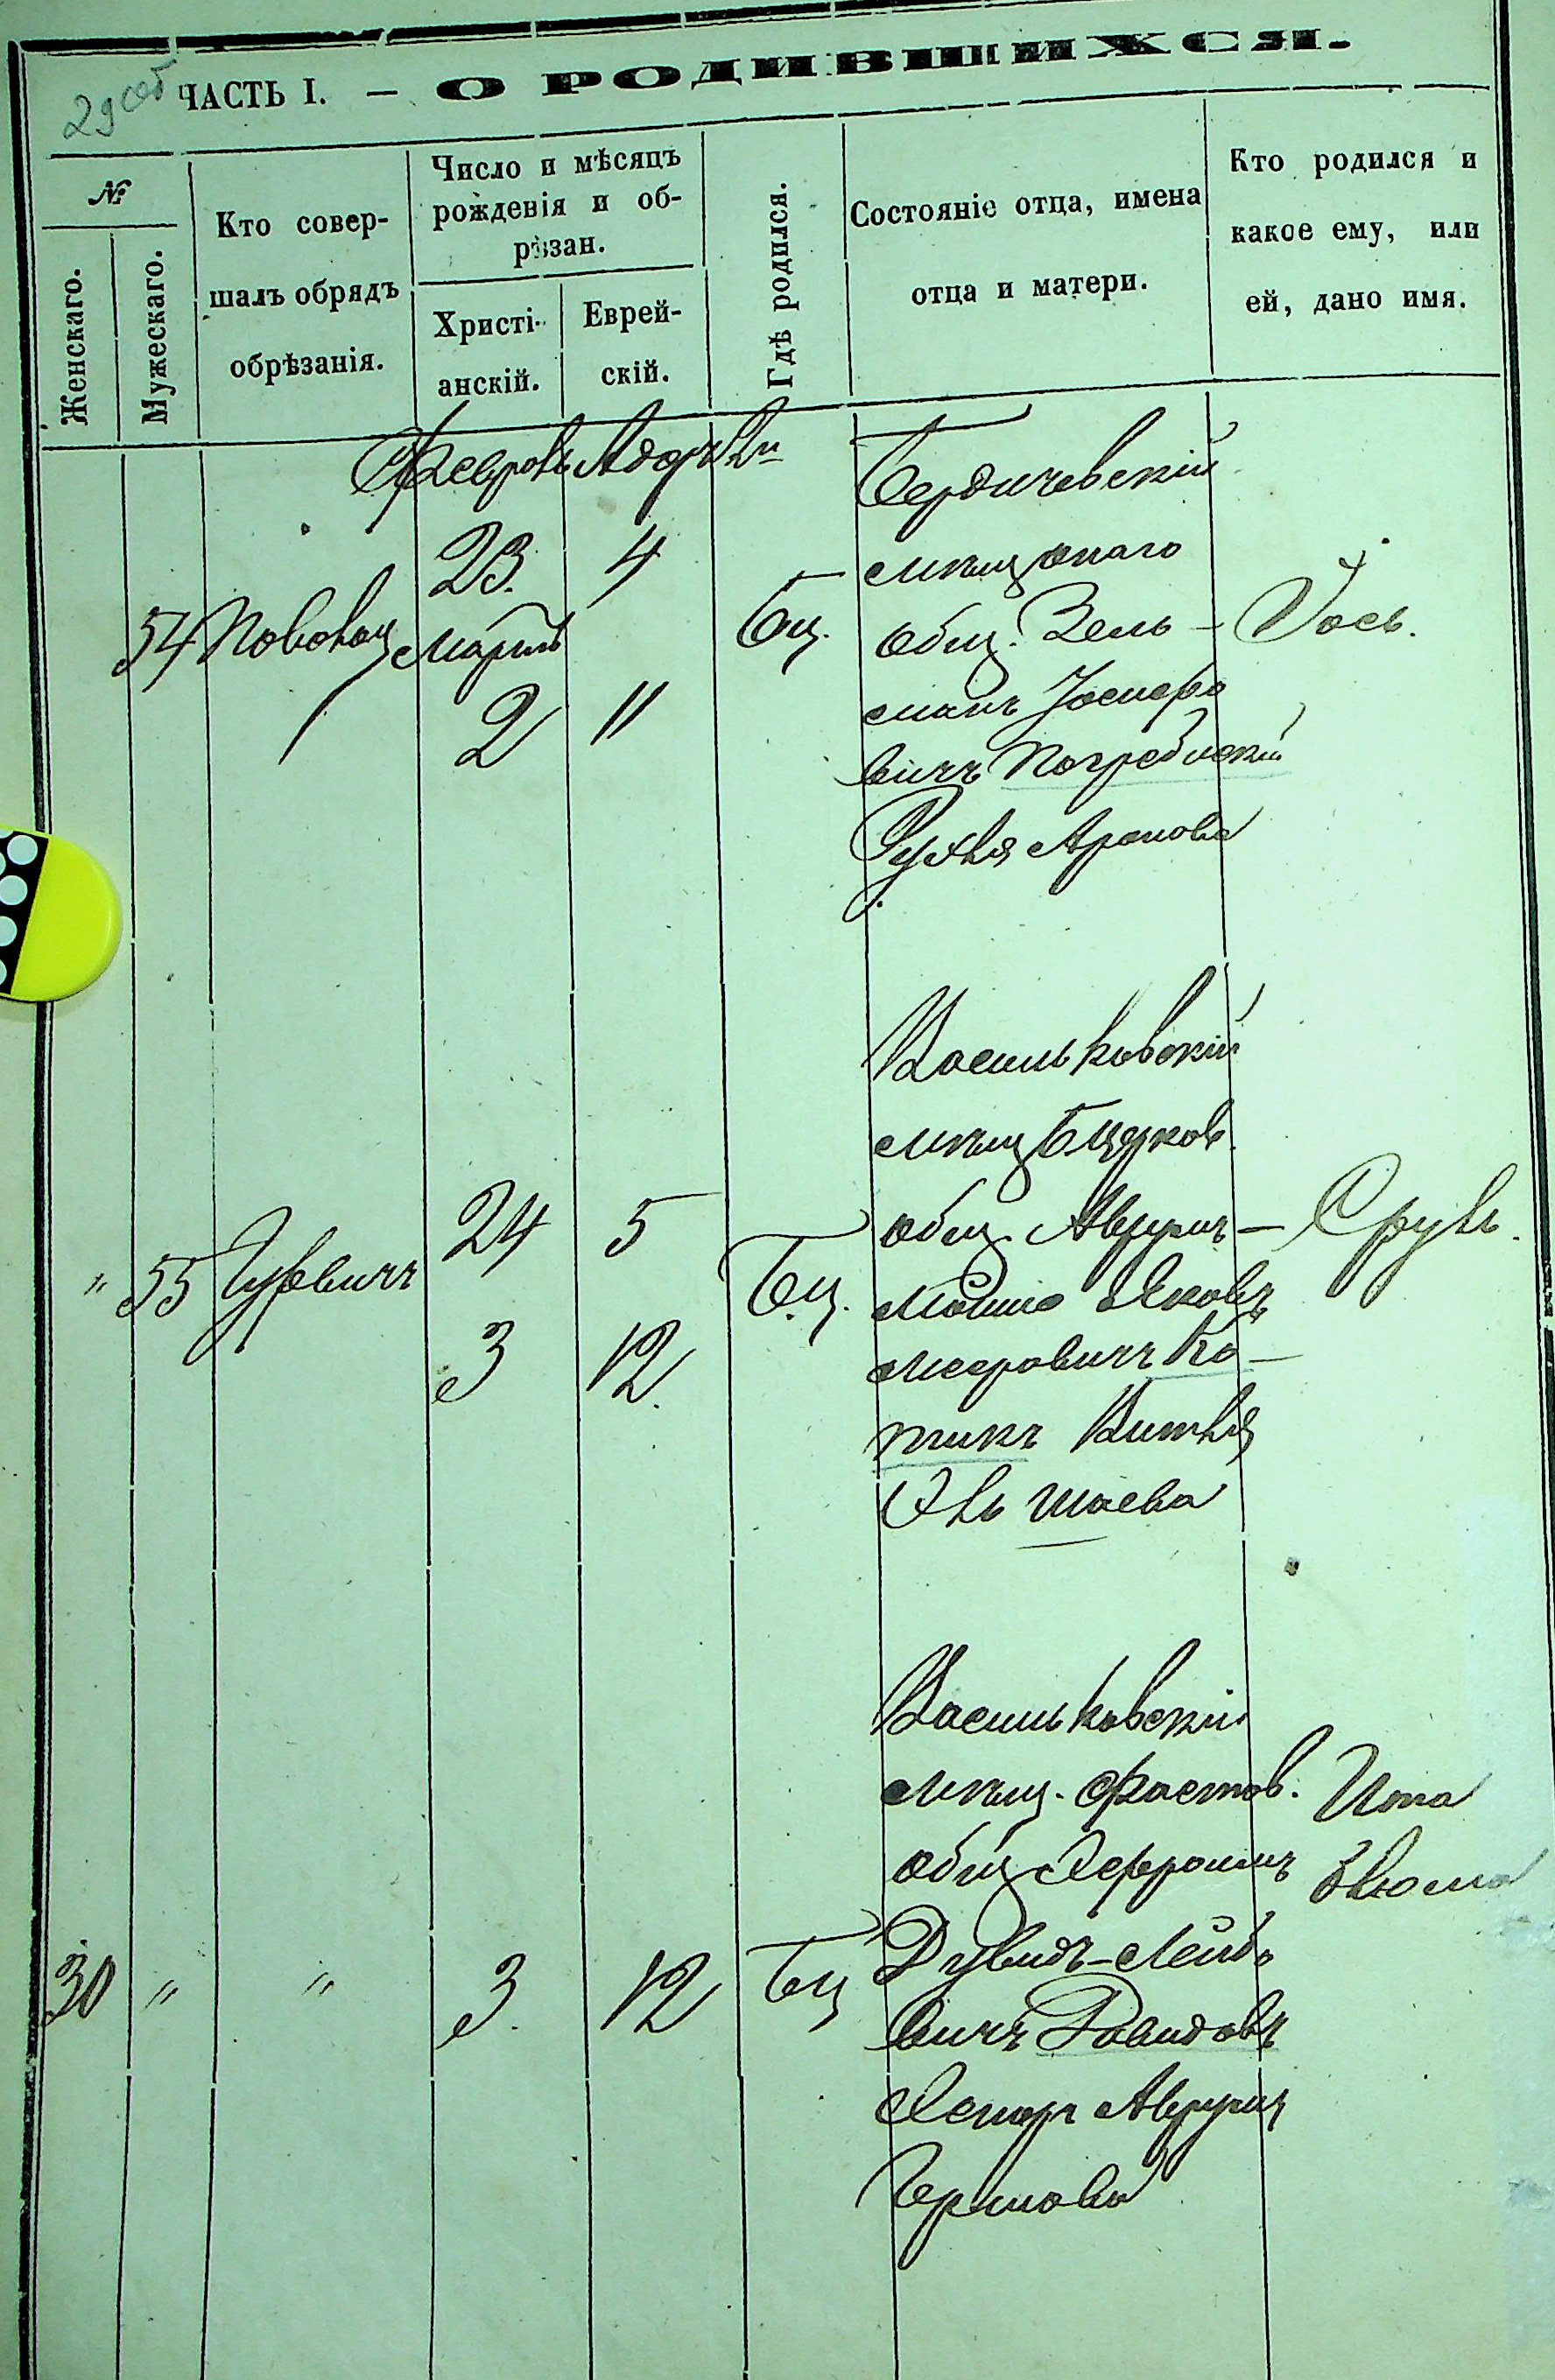 29 об
ЧАСТЬ I. — О РОДИВШИХСЯ.
№
Женскаго.
Мужескаго.
Кто совер-
шалъ обрядъ
обрѣзанія.
Число и мѣсяцъ
рожденія и об-
рѣзан.
Христі-
анскій.
Еврей-
скій.
Гдѣ родился.
Состояніе отца, имена
отца и матери.
Кто родился и
какое ему, или
ей, дано имя.
Февраль Адаръ
54
23.
4
Мартъ
2
11
Бц.
Бердичевскій
мѣщ онаго
общ. Зель-
манъ Іосифо
вичъ Погребискій
Рухля Аронова
Іось.
" 55 Гурвичъ
24
5
3
12.
Бц.
Васильковскій
мѣщ Бцерков.
общ. Аврумъ-
Мошко Яковъ
Мееровичъ Ко-
тикъ
Шаева
Сруль.
30 " "
3.
12
Бц
Васильковскій
мѣщ. Фастов.
общ Ефроимъ
Дувидъ-Лейбо
вичъ Давидовъ
Естеръ Аврум
Гершова
Ита
Блюма